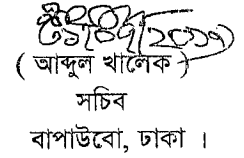 ( আব্দুল খালেক )
সচিব
বাপাউবো, ঢাকা ।